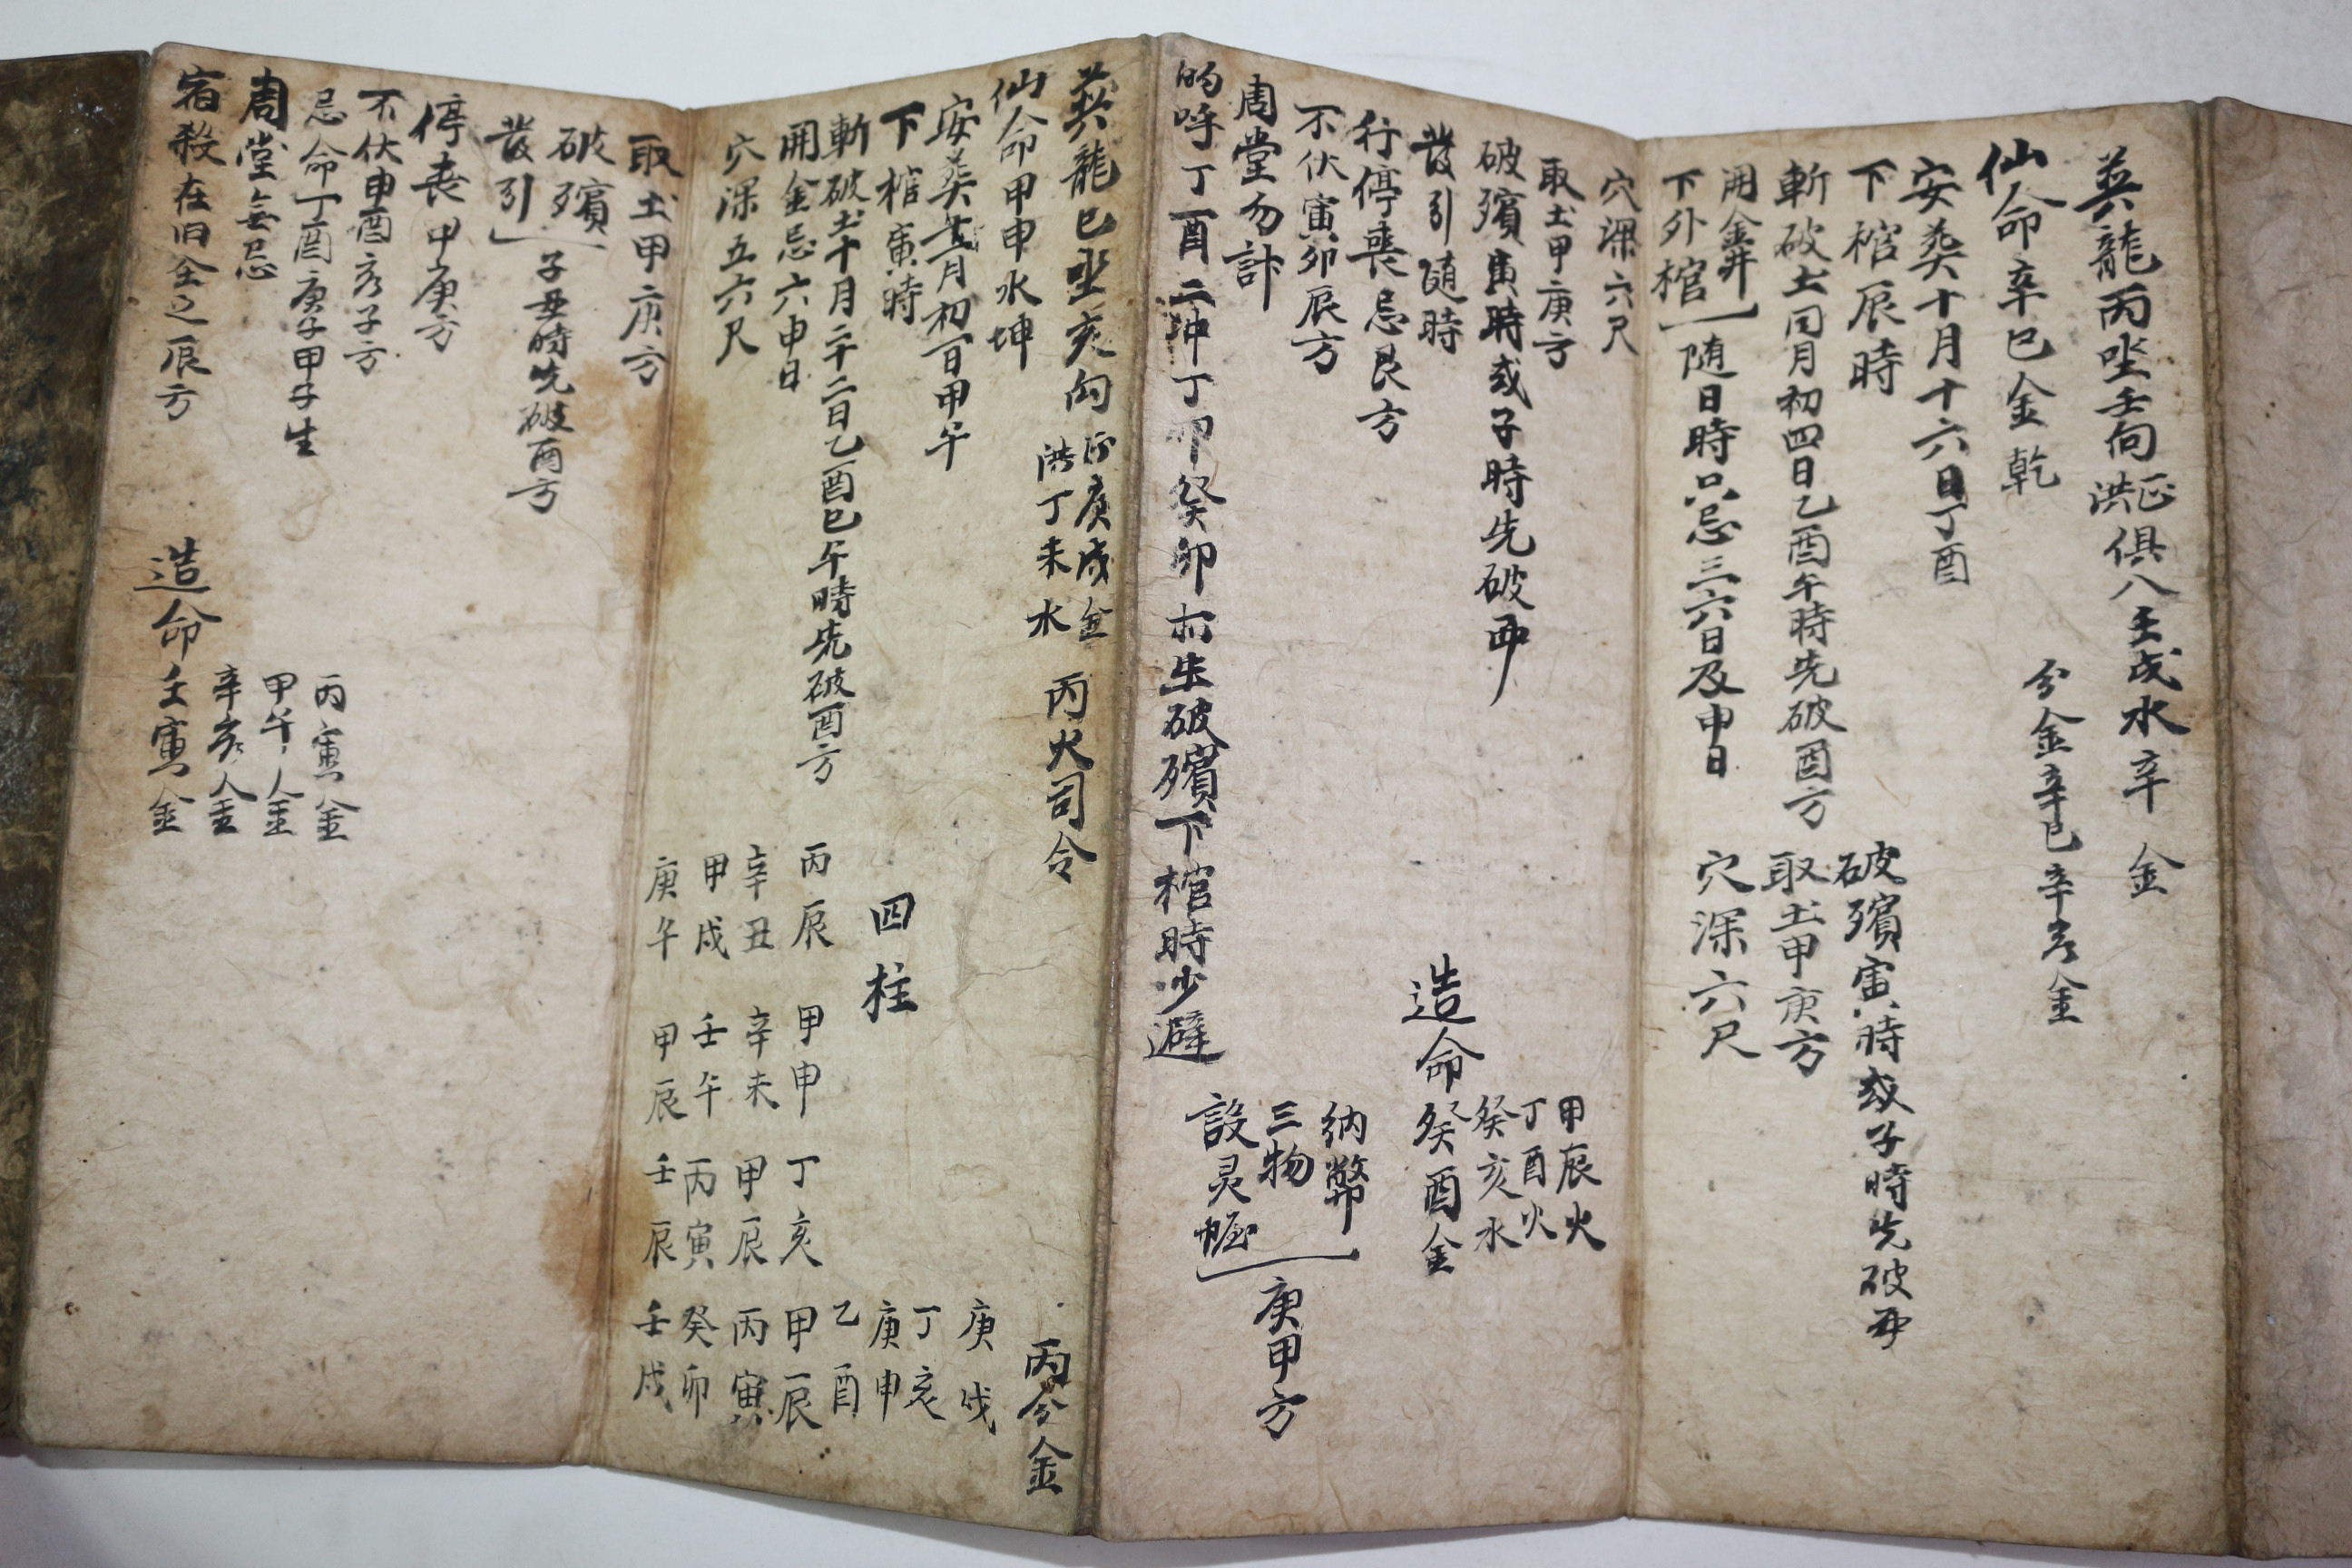 葬龍丙坐壬向洪正俱八壬戌水辛 金
仙命辛巳金乾 分金辛巳辛亥金
安葬十月十六日丁酉
下棺辰時
破殯寅時或子時先破
斬破土同月初四日乙酉午時先破酉方
取土甲庚方
開金井
下外棺
随日時只忌三六日及申日
穴深六尺
穴深六尺
取土甲庚方
破殯寅時或子時先破
發引随時
行停喪忌艮方
不伏寅卯辰方
周堂勿計
的呼丁酉二冲丁卯癸卯 生破殯下棺時少避
造命癸酉金
甲辰火
丁酉火
癸亥水
納幣
三物
設灵幄
庚甲方
葬龍巳坐亥向 正庚戌金 洪丁未水 丙火司令
丙分金
仙命甲申水坤
安葬 月初一日甲午
下棺寅時
斬破土十月二十二日乙酉巳午時先破酉方
開金忌六申日
穴深五六尺
四柱
庚戌
丁亥
庚申
乙酉
丙辰 甲申 丁亥 甲辰
辛丑 辛未 甲辰 丙寅
甲戌 壬午 丙寅 癸卯
庚午 甲辰 壬辰 壬戌
取土甲庚方
破殯
發引
子丑時先破酉方
停喪甲庚方
不伏申酉亥子方
忌命丁酉庚子甲子生
周堂無忌
宿殺在旧全之辰方
造命壬寅金
丙寅金
甲午金
辛亥金